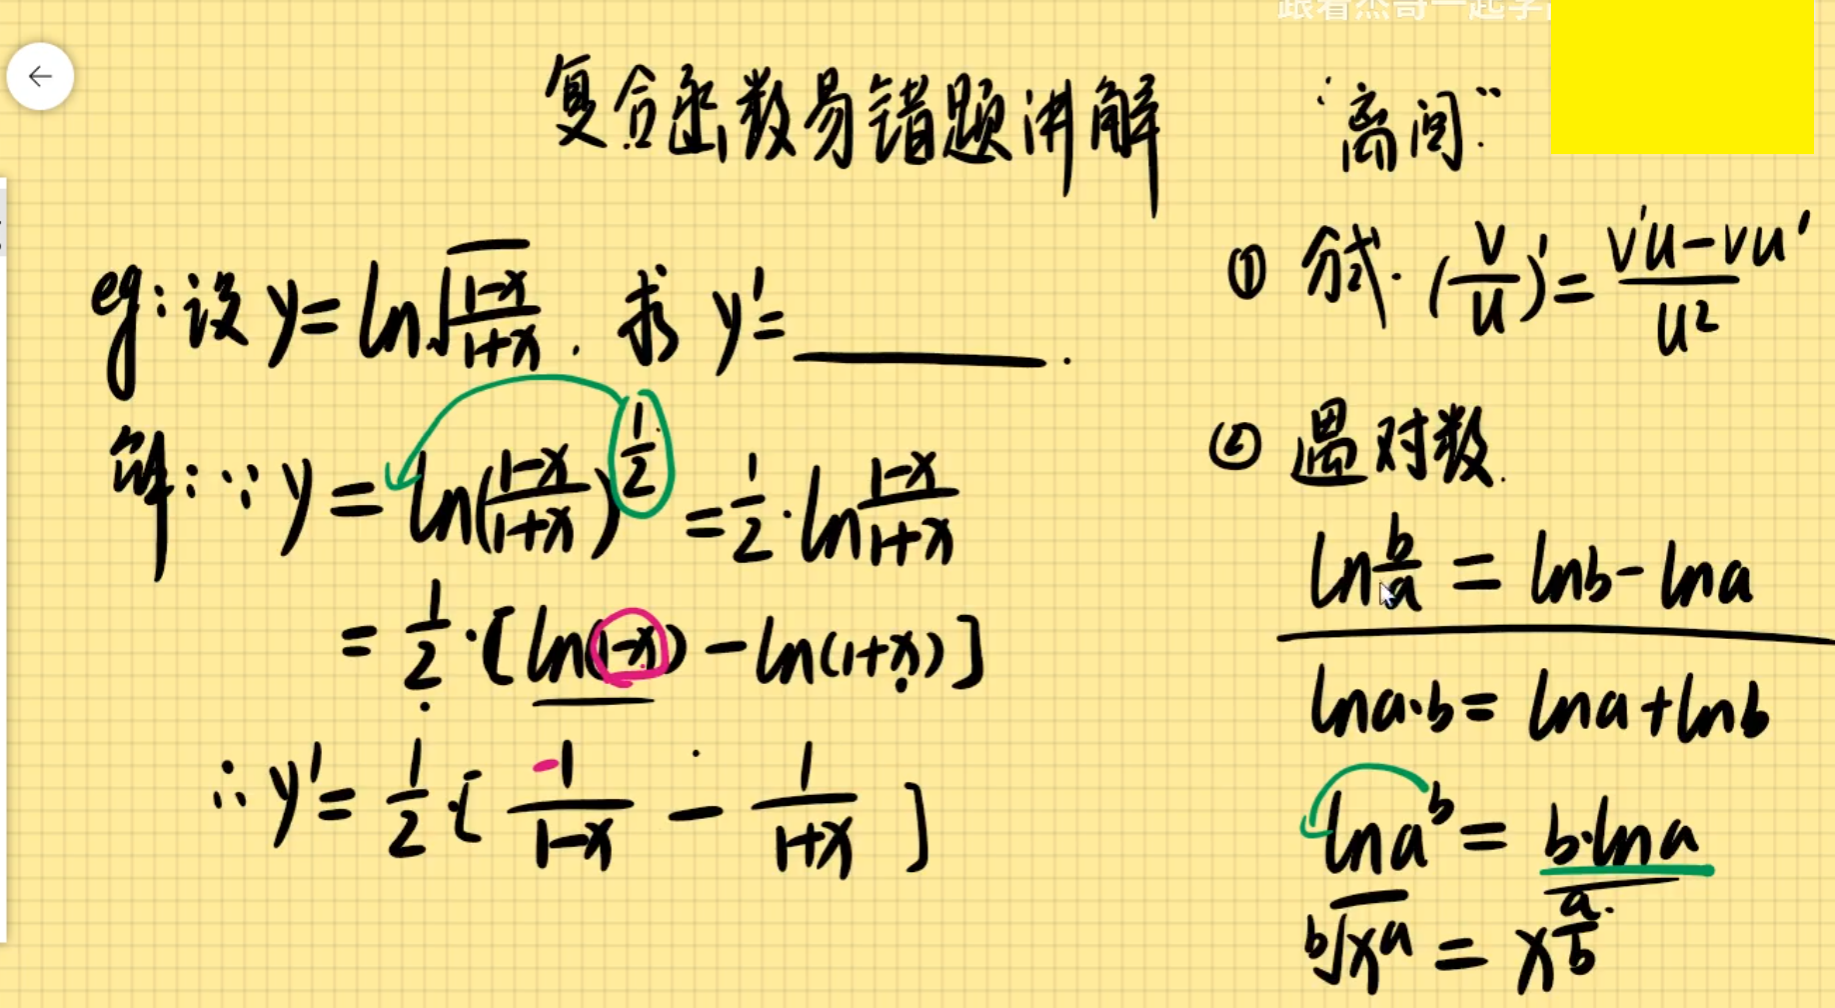 跟着杰哥一起学
复合函数易错题讲解
"离间"
eg:设 y=ln√((1-x)/(1+x)). 求 y'=______.
解:∵ y=ln((1-x)/(1+x))^(1/2) = 1/2·ln (1-x)/(1+x)
= 1/2·[ln(1-x)-ln(1+x)]
∴ y'= 1/2·[ -1/(1-x) - 1/(1+x) ]
① 分式. (v/u)'= (v'u-vu')/u²
② 遇对数.
ln b/a = lnb-lna
lna·b= lna+lnb
lna^b = b·lna
b√x^a = x^(a/b)